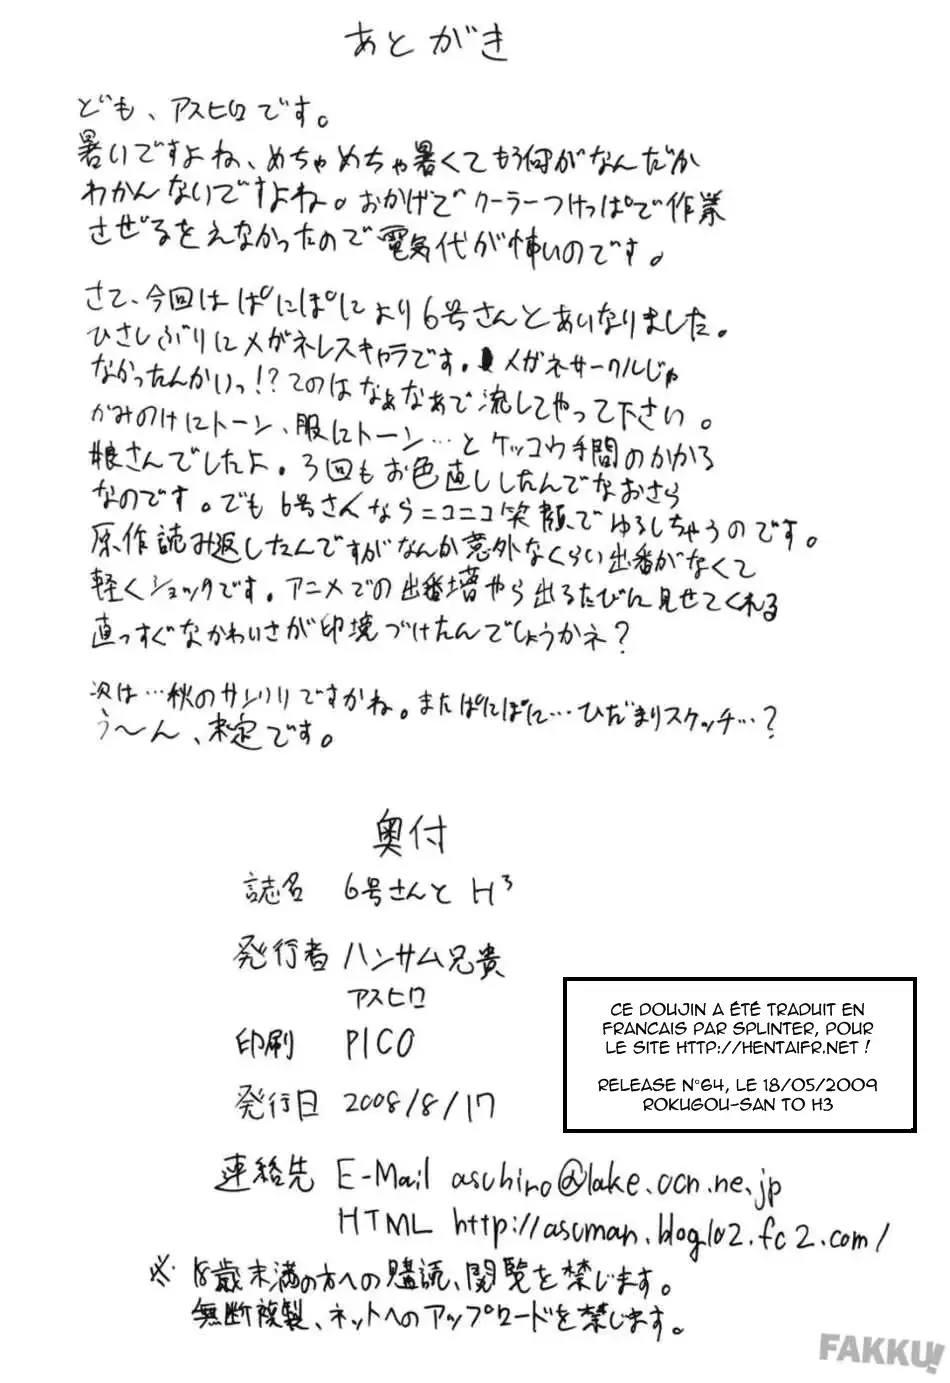 あとがき
ども、アスヒロです。
暑いですよね、めちゃめちゃ暑くてもう何がなんだか
わかんないですよね。おかげでクーラーつけっぱで作業
させざるをえなかったので電気代が怖いのです。
さて、今回はぱにぽにより6号さんとあいなりました。
ひさしぶりにメガネレスキャラです。メガネサークルじゃ
なかったんかいっ!?てのはなぁなぁで流してやって下さい。
かみのけにトーン、服にトーン…とケッコウ手間のかかる
娘さんでしたよ。3回もお色直ししたんでなおさら
なのです。でも6号さんならニコニコ笑顔でゆるしちゃうのです。
原作読み返したんですがなんか意外なくらい出番がなくて
軽くショックです。アニメでの出番増やら出るたびに見せてくれる
直っすぐなかわいさが印境づけたんでしょうかネ?
次は…秋のサンクリですかね。またぱにぽに…ひだまりスケッチ…?
う〜ん、未定です。
奥付
誌名 6号さんと H³
発行者 ハンサム兄貴
アスヒロ
印刷 PICO
発行日 2008/8/17
連絡先 E-Mail asuhiro@lake.ocn.ne.jp
HTML http://asuman.blog102.fc2.com/
※ 18歳未満の方への購読、閲覧を禁じます。
無断複製、ネットへのアップロードを禁じます。
CE DOUJIN A ÉTÉ TRADUIT EN
FRANCAIS PAR SPLINTER, POUR
LE SITE HTTP://HENTAIFR.NET !
RELEASE N°64, LE 18/05/2009
ROKUGOU-SAN TO H3
FAKKU!